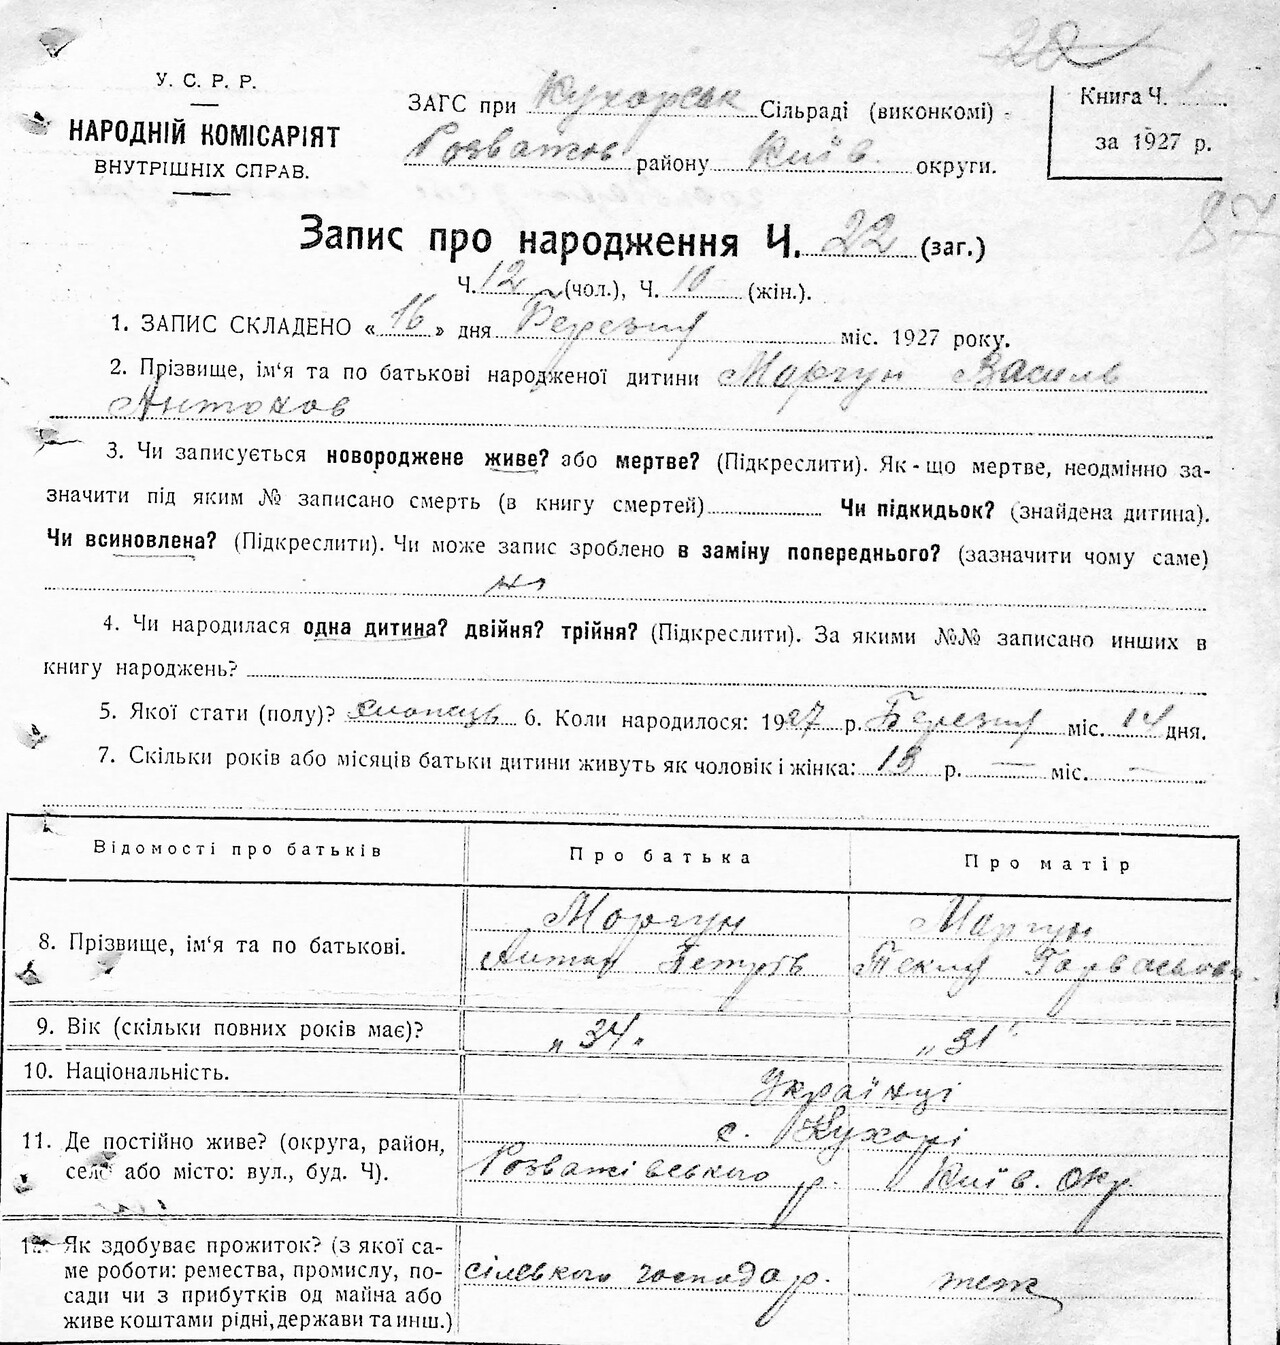 20
У. С. Р. Р.
НАРОДНІЙ КОМІСАРІЯТ
ВНУТРІШНІХ СПРАВ.
ЗАГС при Кухорськ Сільраді (виконкомі)
Розважов району Київ. округи.
Книга Ч. 1
за 1927 р.
87
Запис про народження Ч. 22 (заг.)
Ч. 12 (чол.), Ч. 10 (жін.).
1. ЗАПИС СКЛАДЕНО « 16 » дня Березня міс. 1927 року.
2. Прізвище, ім‘я та по батькові народженої дитини Моргун Василь
Антонов
3. Чи записується новороджене живе? або мертве? (Підкреслити). Як-що мертве, неодмінно за-
значити під яким № записано смерть (в книгу смертей) Чи підкидьок? (знайдена дитина).
Чи всиновлена? (Підкреслити). Чи може запис зроблено в заміну попереднього? (зазначити чому саме)
4. Чи народилася одна дитина? двійня? трійня? (Підкреслити). За якими №№ записано инших в
книгу народжень?
5. Якої стати (полу)? хлопець 6. Коли народилося: 1927 р. Березня міс. 14 дня.
7. Скільки років або місяців батьки дитини живуть як чоловік і жінка: 13 р. — міс. —
Відомості про батьків Про батька Про матір
8. Прізвище, ім‘я та по батькові. Моргун Моргун
Антон Петрів Текля Гарвасьова
9. Вік (скільки повних років має)? „34„ „31“
10. Національність. Українці
11. Де постійно живе? (округа, район,
село або місто: вул., буд. Ч). с. Кухорі
Розважівського р. Київ. окр.
12. Як здобуває прожиток? (з якої са-
ме роботи: ремества, промислу, по-
сади чи з прибутків од майна або
живе коштами рідні, держави та инш.) сілського господар. теж